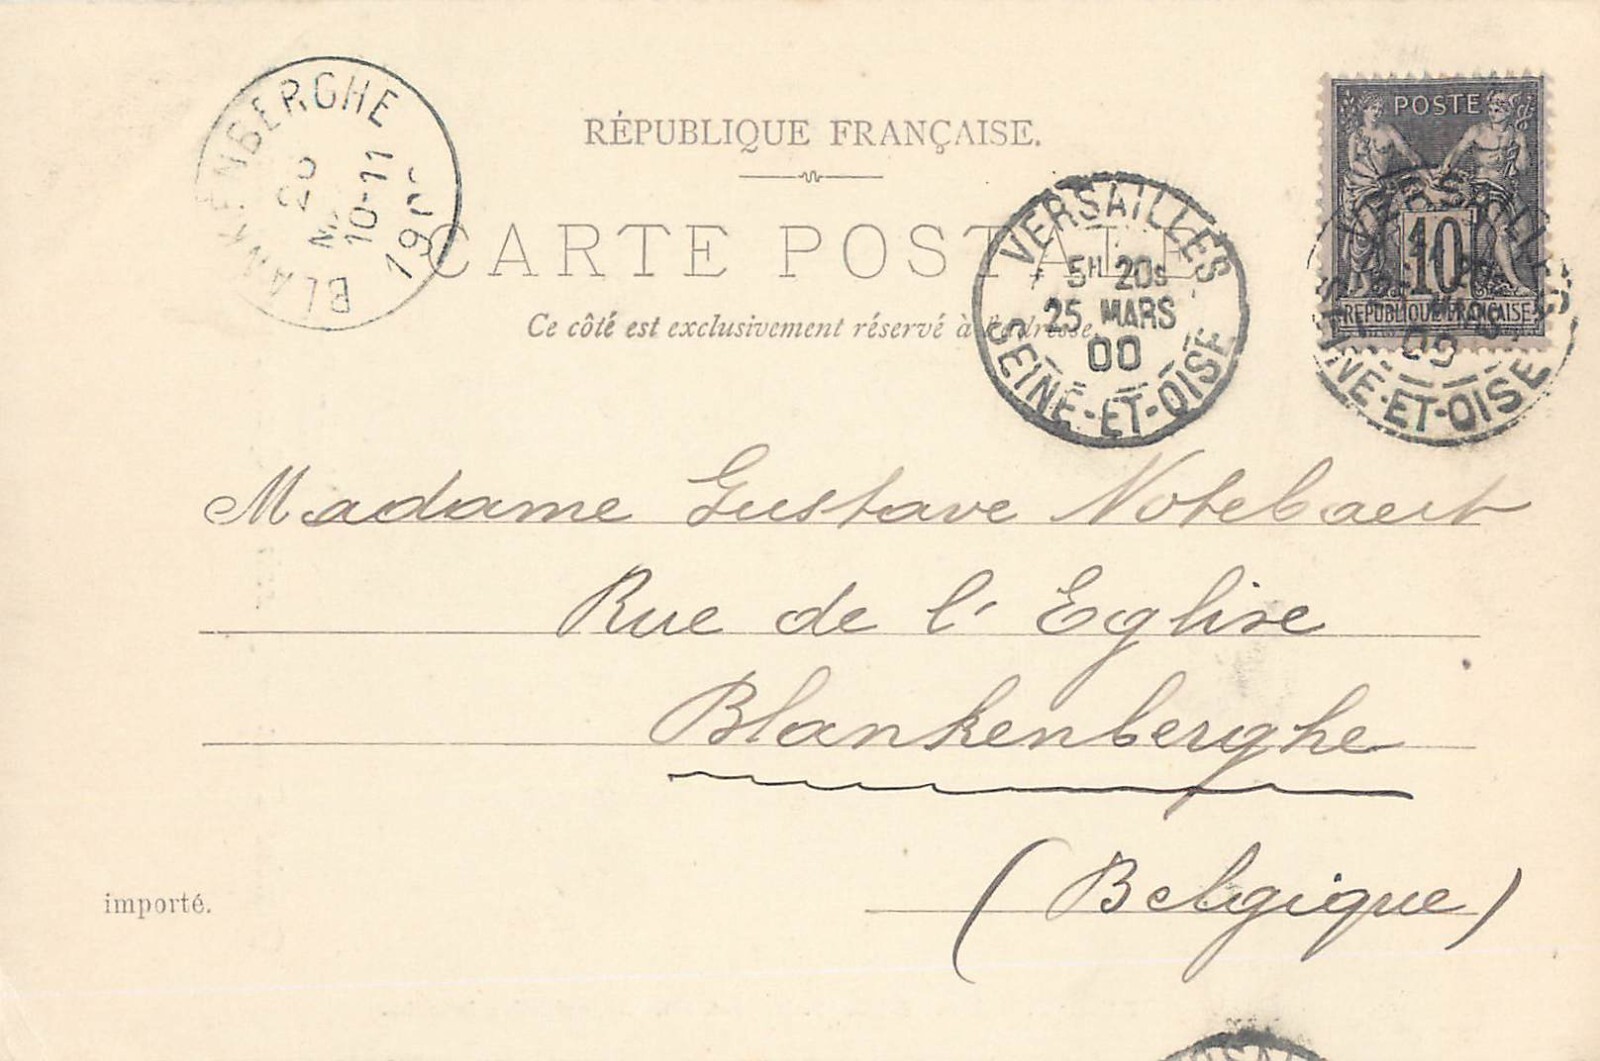 BLANKENBERGHE
10-11
RÉPUBLIQUE FRANÇAISE.
CARTE POSTALE
Ce côté est exclusivement réservé à l'adresse
VERSAILLES
5H 20S
25 MARS
00
SEINE-ET-OISE
POSTE
10
REPUBLIQUE FRANÇAISE
VERSAILLES
00
SEINE-ET-OISE
Madame Gustave Notebaert
Rue de l'Eglise
Blankenberghe
(Belgique)
importé.